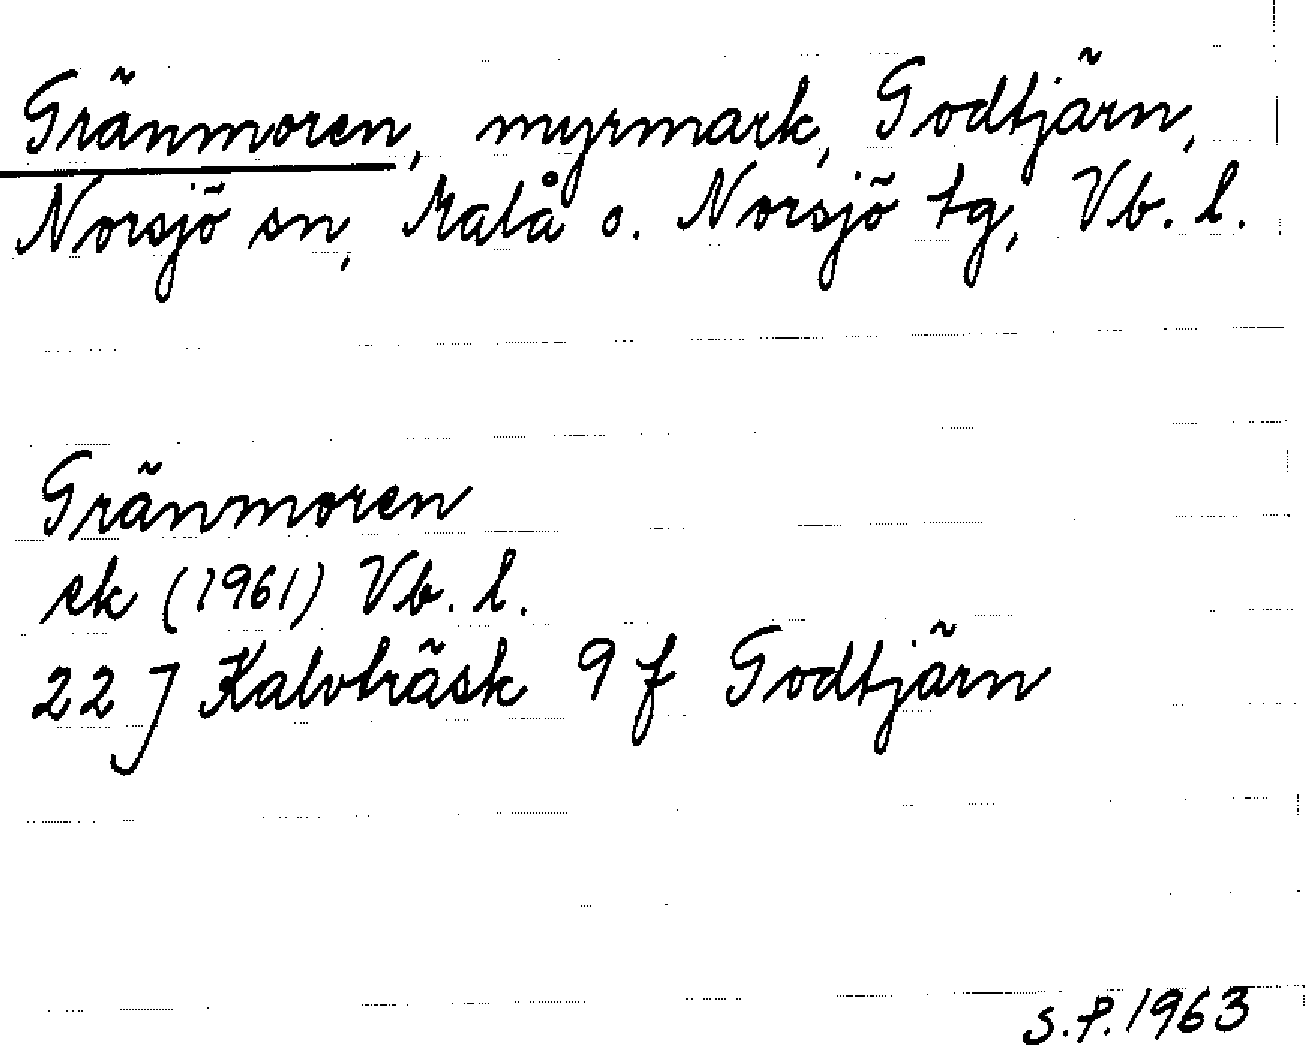 Gränmoren, myrmark, Godtjärn,
Norsjö sn, Malå o. Norsjö tg, Vb. l.
Gränmoren
ek (1961) Vb. l.
22 J Kalvträsk 9 f Godtjärn
S.P. 1963